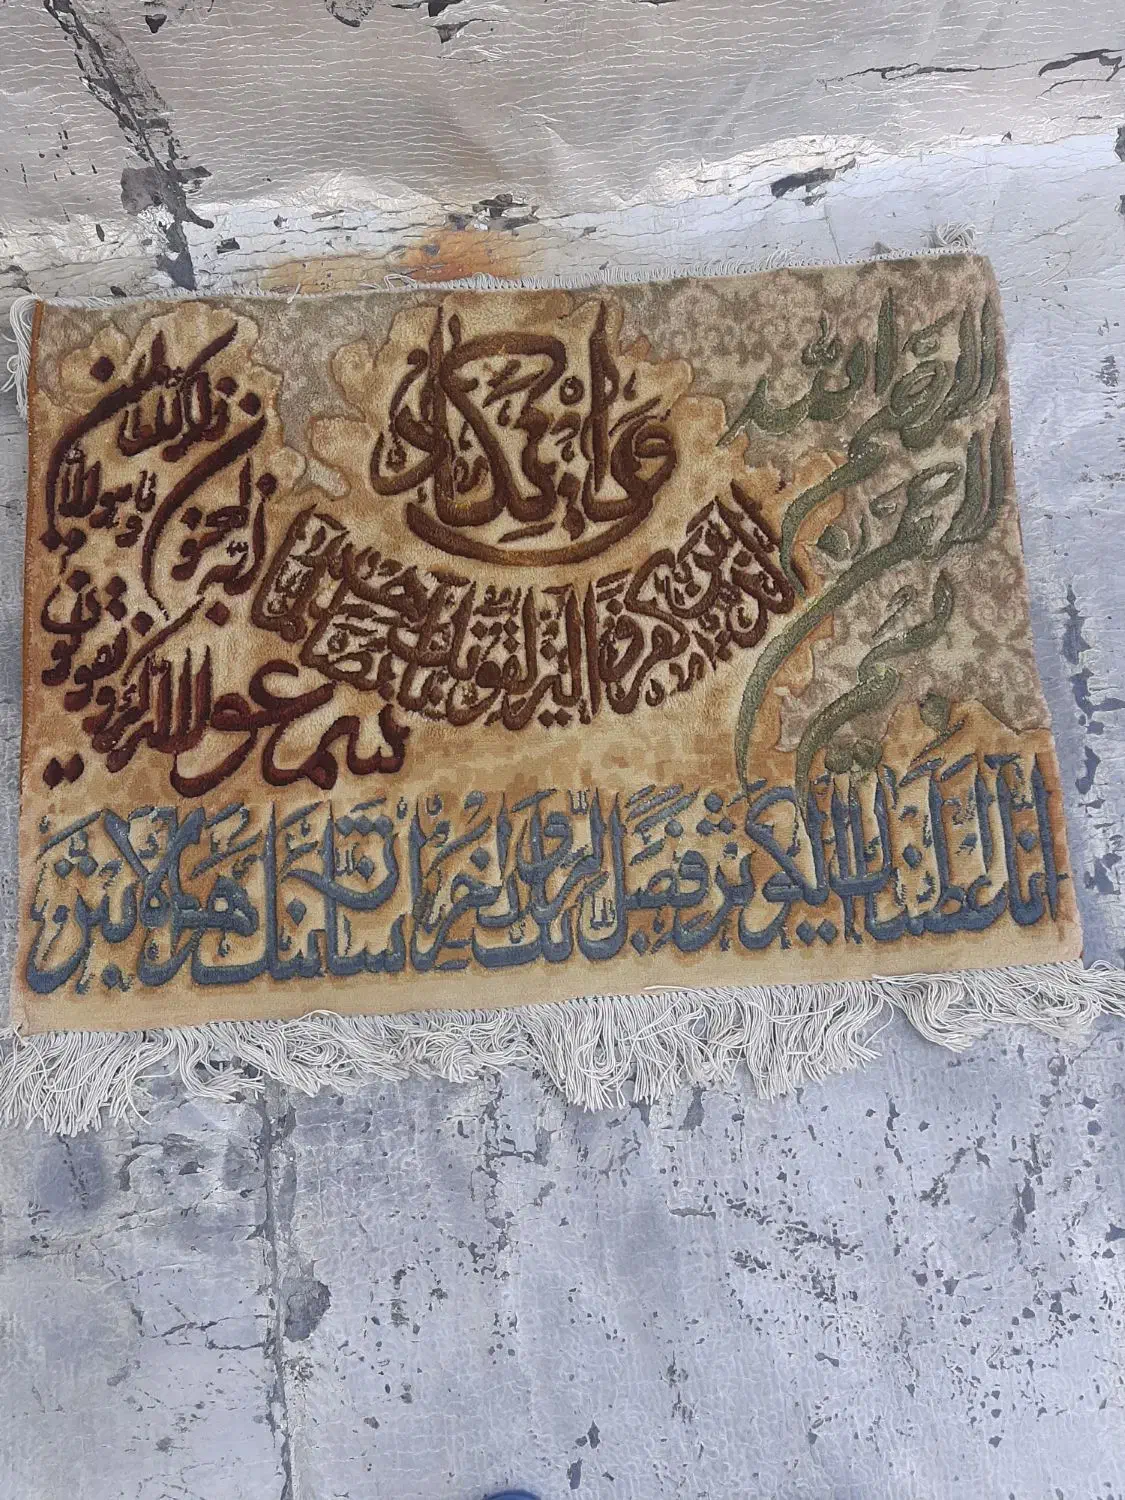 بسم الله الرحمن الرحيم
وان يكاد
الذين كفروا ليزلقونك بابصارهم
لما سمعوا الذكر ويقولون
انه لمجنون وما هو الا
ذكر للعالمين
انا اعطيناك الكوثر فصل لربك وانحر ان شانئك هو الابتر